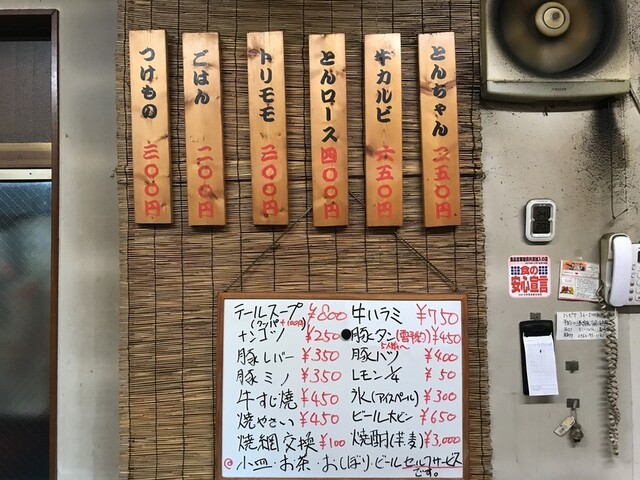 とんちゃん 二五〇円
牛カルビ 六五〇円
とんロース 四〇〇円
トリモモ 三〇〇円
ごはん 二〇〇円
つけもの 三〇〇円
テールスープ ¥800
(クッパ+100円)
ナンコツ ¥250
豚レバー ¥350
豚ミノ ¥350
牛すじ焼 ¥450
焼やさい ¥450
焼網交換 ¥100
牛ハラミ ¥750
豚タン(要予約) ¥450
5人前〜
豚ハツ ¥400
レモン1/4 ¥50
氷(アイスペール) ¥300
ビール大ビン ¥650
焼酎(芋麦) ¥3,000
小皿・お茶・おしぼり・ビールセルフサービス
です。
食の
安心宣言